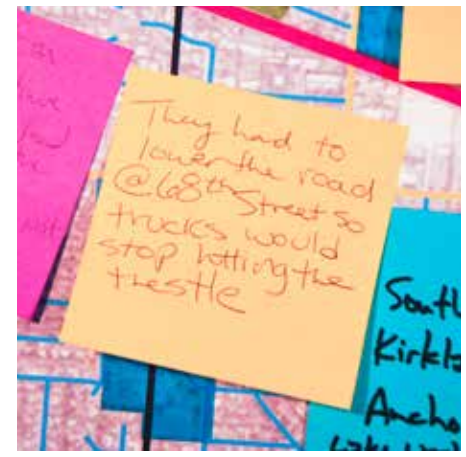 They had to
lower the road
@ 68th Street so
trucks would
stop hitting the
trestle
South
Kirkla
Ancho